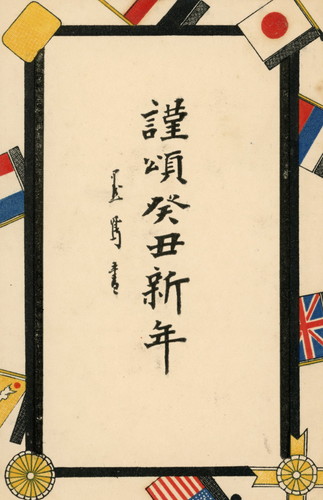 謹頌癸丑新年